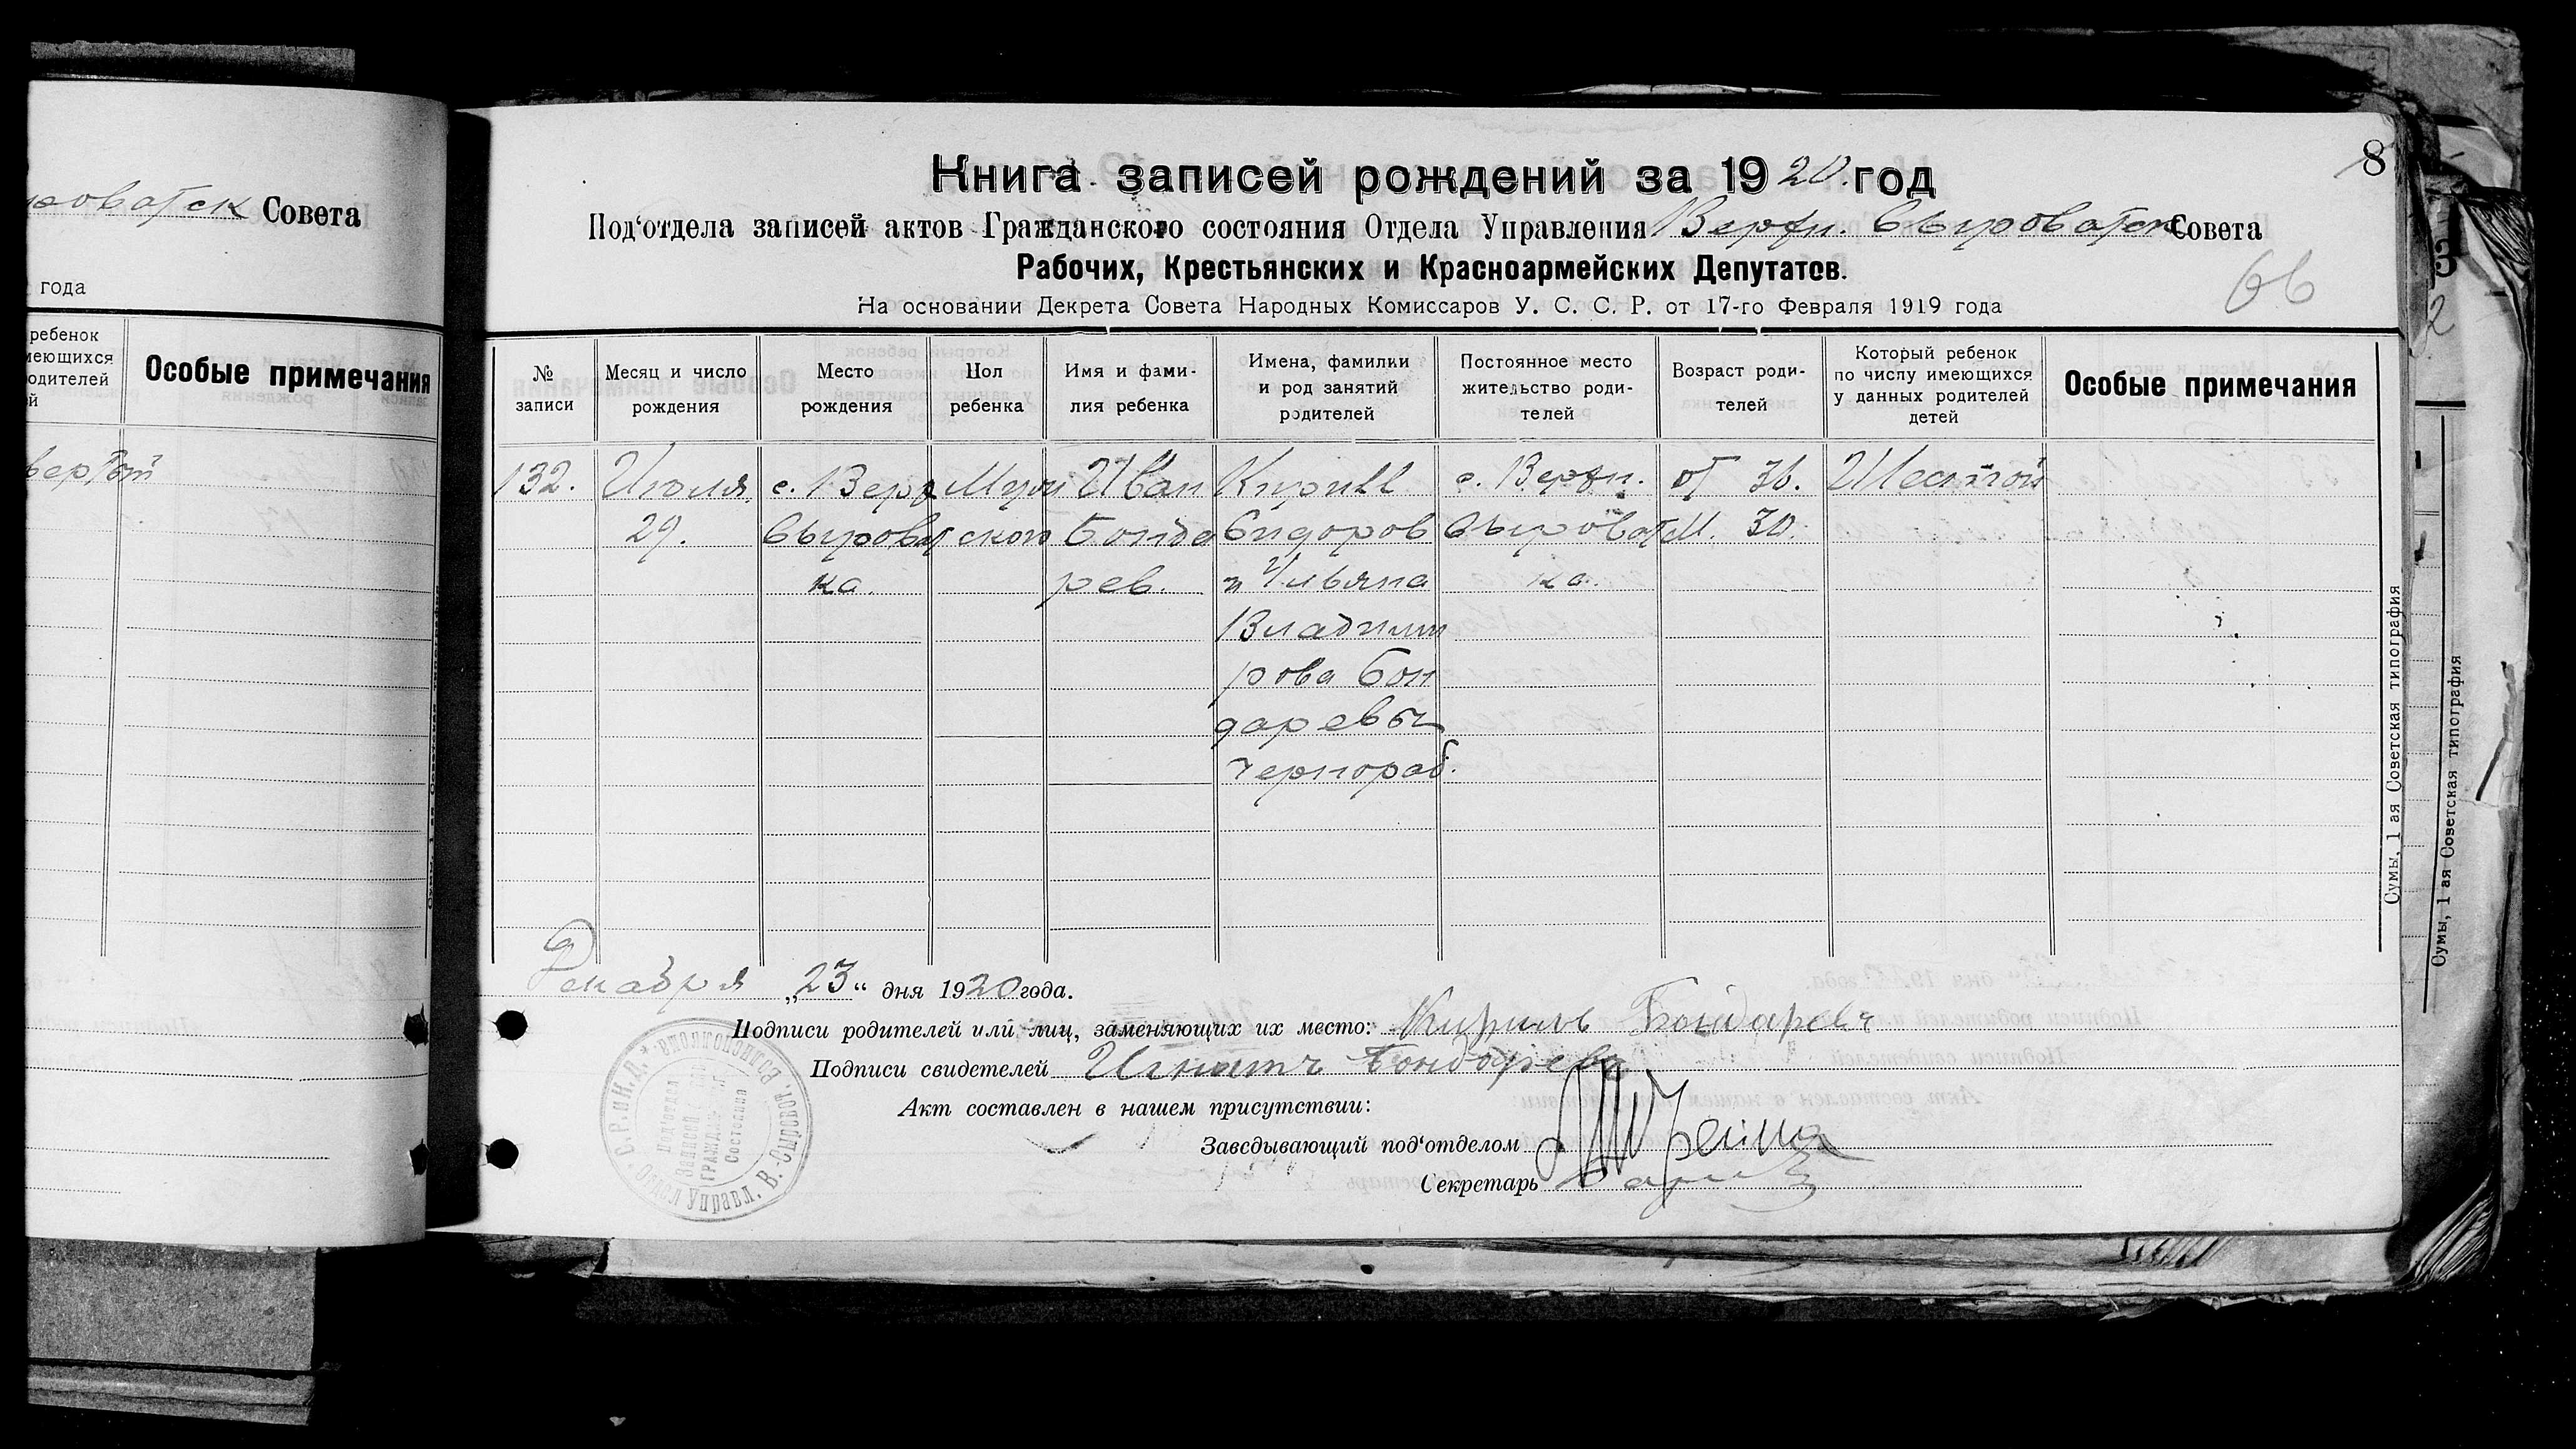 Совета
года
ребенок
имеющихся
родителей
ей
Особые примечания
8
Книга записей рождений за 1920. год
Под‘отдела записей актов Гражданского состояния Отдела Управления Верхн. Сыроватск Совета
Рабочих, Крестьянских и Красноармейских Депутатов.
66
На основании Декрета Совета Народных Комиссаров У. С. С. Р. от 17-го Февраля 1919 года
№ записи
Месяц и число рождения
Место рождения
Пол ребенка
Имя и фами-
лия ребенка
Имена, фамилии
и род занятий
родителей
Постоянное место
жительство роди-
телей
Возраст роди-
телей
Который ребенок
по числу имеющихся
у данных родителей
детей
Особые примечания
132.
Июля
29.
с. Верх
Сыроват
ка.
Муж
ского
Иван
Бонда
рев.
Кирилл
Сидоров
и Ульяна
Владими
рова Бон
даревы
чернораб.
с. Верхн.
Сыроват
ка.
от 36.
М. 30.
Шестой
Сумы, 1 ая Советская типография
Сумы, 1 ая Советская типография
Декабря „23“ дня 1920 года.
Подписи родителей или лиц, заменяющих их место: Кирилъ Бондаревъ
Подписи свидетелей Игнатъ Бондарева
Акт составлен в нашем присутствии:
Заведывающий под‘отделом
Секретарь
Подотдел
Записей
Граждан.
Состояния